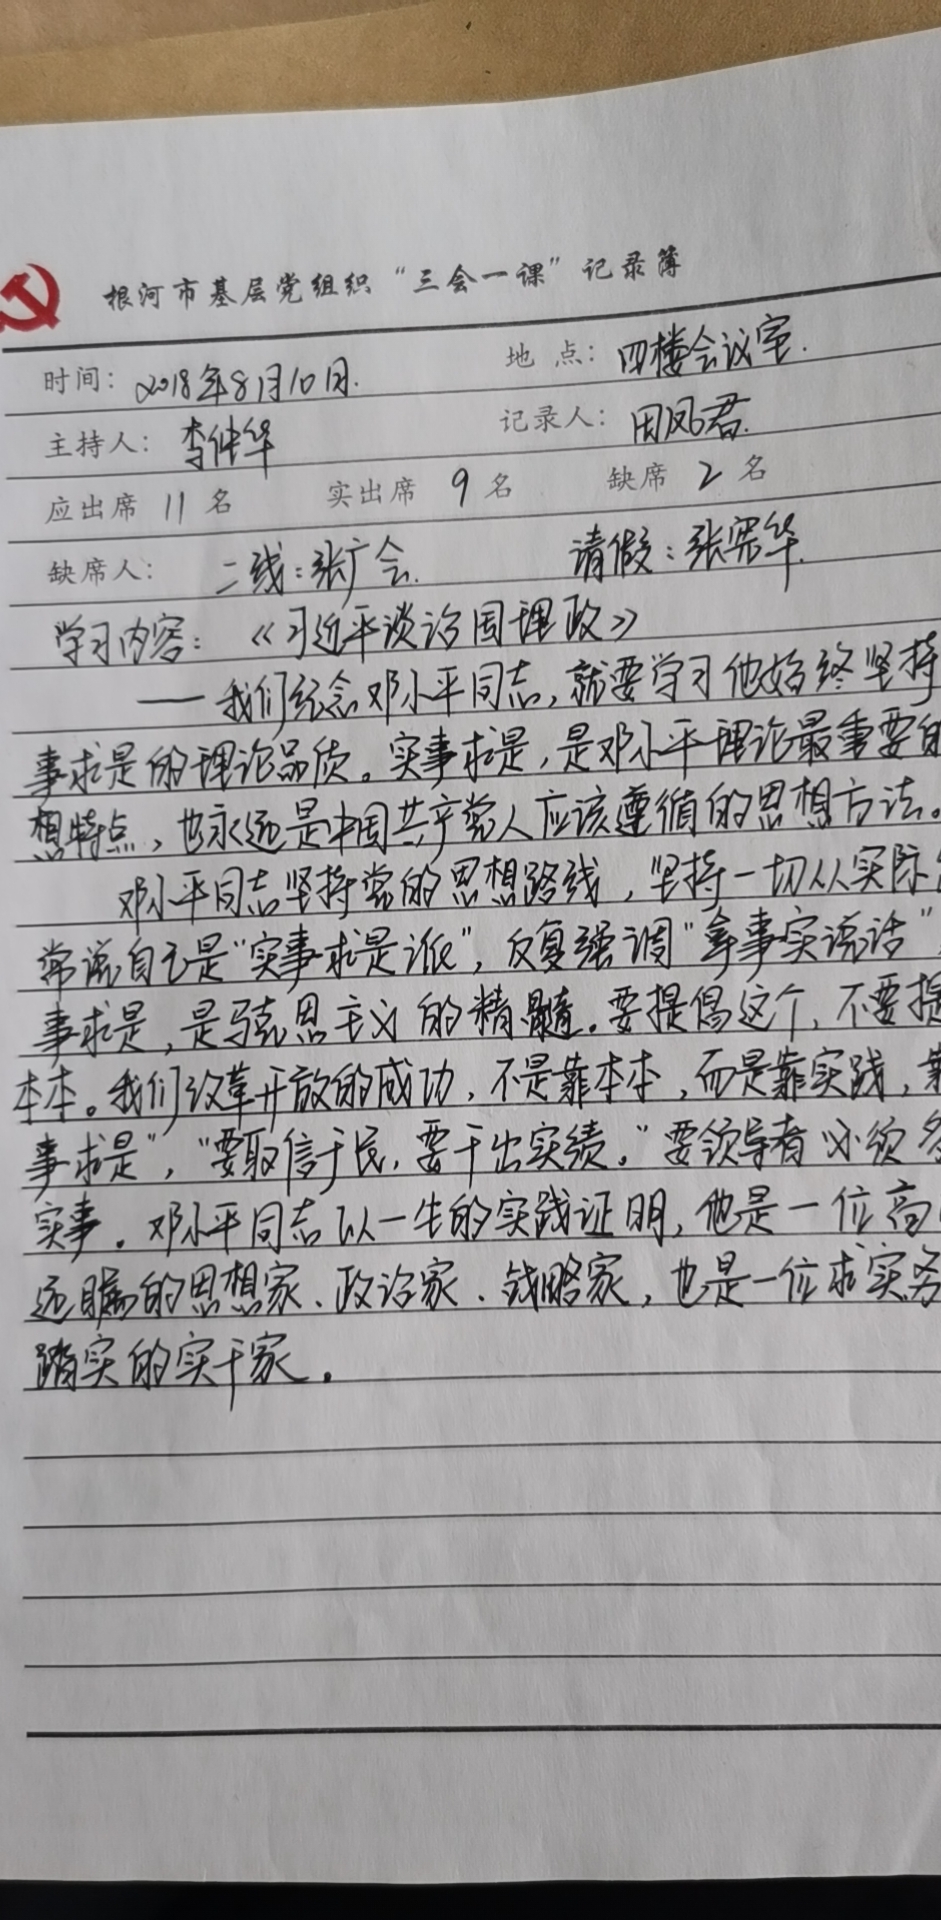 根河市基层党组织“三会一课”记录簿
时间：2018年8月10日. 地点：四楼会议室.
主持人：李仲华 记录人：田凤君.
应出席 11 名 实出席 9 名 缺席 2 名
缺席人： 二线：张广会. 请假：张宪华.
学习内容：《习近平谈治国理政》
— 我们纪念邓小平同志，就要学习他始终坚持
事求是的理论品质。实事求是，是邓小平理论最重要的
想特点，也永远是中国共产党人应该遵循的思想方法。
邓小平同志坚持党的思想路线，坚持一切从实际
常说自己是“实事求是派”，反复强调“拿事实说话”，
事求是，是马克思主义的精髓。要提倡这个，不要提
本本。我们改革开放的成功，不是靠本本，而是靠实践，靠
事求是”，“要取信于民，要干出实绩。”要领导者必须多
实事。邓小平同志以一生的实践证明，他是一位高
远瞩的思想家、政治家、战略家，也是一位求实务
踏实的实干家。